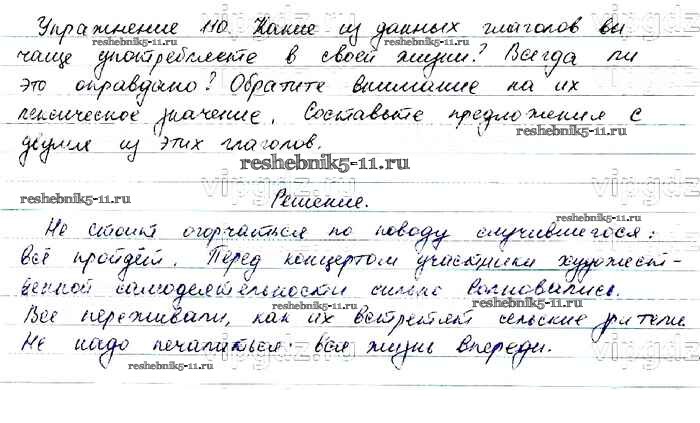 Упражнение 110. Какие из данных глаголов вы
чаще употребляете в своей жизни? Всегда ли
это оправдано? Обратите внимание на их
лексическое значение. Составьте предложения с
двумя из этих глаголов.
Решение.
Не стоит огорчаться по поводу случившегося:
всё пройдёт. Перед концертом участники художест-
венной самодеятельности сильно волновались.
Все переживали, как их встретят сельские зрители.
Не надо печалиться: вся жизнь впереди.
reshebnik5-11.ru
reshebnik5-11.ru
reshebnik5-11.ru
reshebnik5-11.ru
reshebnik5-11.ru
reshebnik5-11.ru
reshebnik5-11.ru
reshebnik5-11.ru
reshebnik5-11.ru
vipgdz
vipgdz
vipgdz
vipgdz